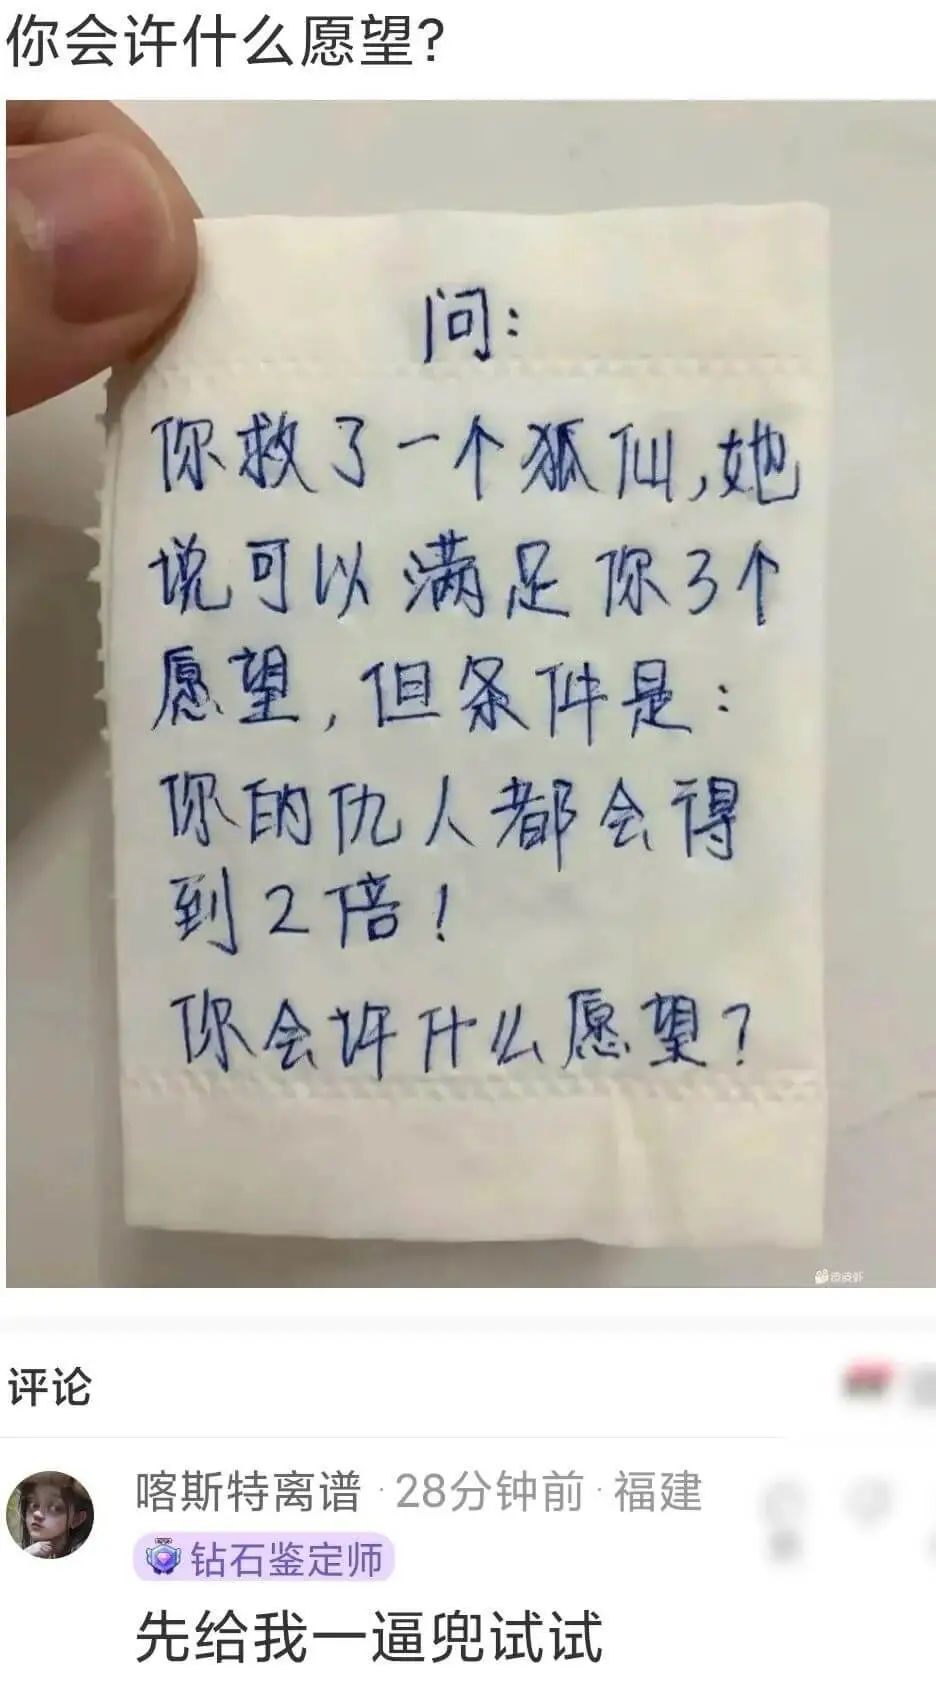 你会许什么愿望?
问:
你救了一个狐仙,她
说可以满足你3个
愿望,但条件是:
你的仇人都会得
到2倍!
你会许什么愿望?
皮皮虾
评论
喀斯特离谱 · 28分钟前 · 福建
钻石鉴定师
先给我一逼兜试试